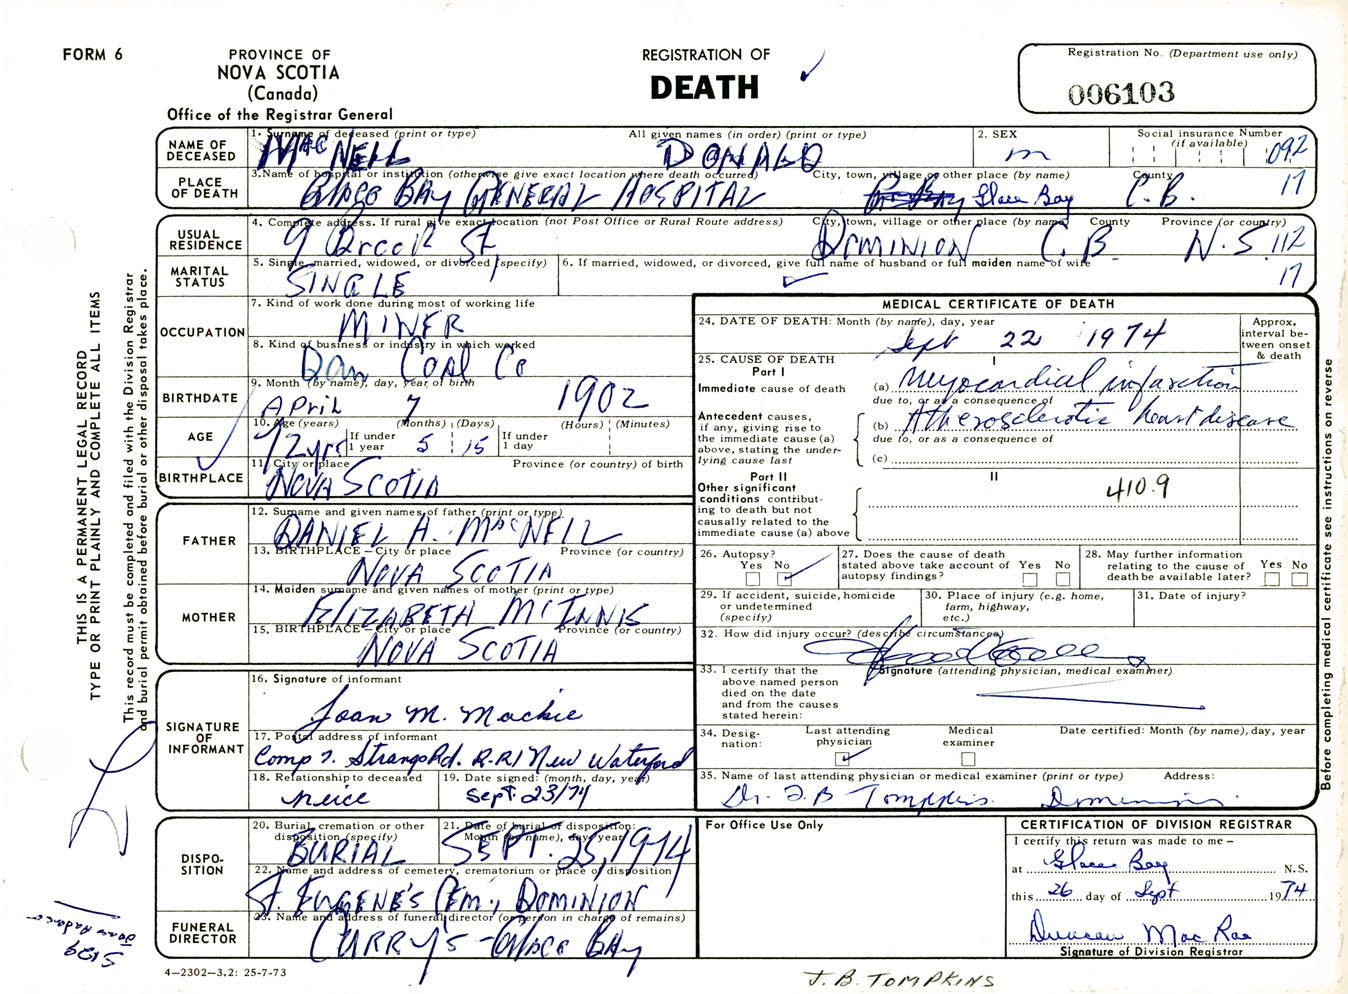 FORM 6
PROVINCE OF
NOVA SCOTIA
(Canada)
Office of the Registrar General
REGISTRATION OF
DEATH
Registration No. (Department use only)
006103
NAME OF DECEASED
1. Surname of deceased (print or type) All given names (in order) (print or type)
MacNEIL DONALD
2. SEX
m
Social insurance Number (if available)
092
PLACE OF DEATH
3. Name of hospital or institution (otherwise give exact location where death occurred) City, town, village or other place (by name) County
GLACE BAY GENERAL HOSPITAL Glace Bay C.B.
17
USUAL RESIDENCE
4. Complete address. If rural give exact location (not Post Office or Rural Route address) City, town, village or other place (by name) County Province (or country)
9 Brook St DOMINION C.B. N.S. 112
MARITAL STATUS
5. Single, married, widowed, or divorced (specify)
SINGLE
6. If married, widowed, or divorced, give full name of husband or full maiden name of wife
17
OCCUPATION
7. Kind of work done during most of working life
MINER
8. Kind of business or industry in which worked
Coal Co
BIRTHDATE
9. Month (by name), day, year of birth
April 7 1902
AGE
10. Age (years) (Months) (Days) (Hours) (Minutes)
72 yrs If under 1 year 5 15 If under 1 day
BIRTHPLACE
11. City or place Province (or country) of birth
NOVA SCOTIA
FATHER
12. Surname and given names of father (print or type)
DANIEL A. MacNEIL
13. BIRTHPLACE – City or place Province (or country)
NOVA SCOTIA
MOTHER
14. Maiden surname and given names of mother (print or type)
ELIZABETH McINNIS
15. BIRTHPLACE – City or place Province (or country)
NOVA SCOTIA
SIGNATURE OF INFORMANT
16. Signature of informant
Joan M. Mackie
17. Postal address of informant
Comp 7. Strang Rd. R.R.1 New Waterford
18. Relationship to deceased
neice
19. Date signed: (month, day, year)
Sept. 23/74
DISPOSITION
20. Burial, cremation or other disposition (specify)
BURIAL
21. Date of burial or disposition: Month (by name), day, year
SEPT. 25, 1974
22. Name and address of cemetery, crematorium or place of disposition
St. EUGENE'S CEM., DOMINION
FUNERAL DIRECTOR
23. Name and address of funeral director (or person in charge of remains)
CURRY'S - GLACE BAY
4–2302–3,2: 25-7-73
MEDICAL CERTIFICATE OF DEATH
24. DATE OF DEATH: Month (by name), day, year
Sept 22 1974
Approx. interval between onset & death
25. CAUSE OF DEATH
Part I
I
Immediate cause of death
(a) Myocardial infarction
due to, or as a consequence of
Antecedent causes, if any, giving rise to the immediate cause (a) above, stating the underlying cause last
(b) Atherosclerotic heart disease
due to, or as a consequence of
(c)
Part II
II
Other significant conditions contributing to death but not causally related to the immediate cause (a) above
410.9
26. Autopsy?
Yes No
27. Does the cause of death stated above take account of autopsy findings? Yes No
28. May further information relating to the cause of death be available later? Yes No
29. If accident, suicide, homicide or undetermined (specify)
30. Place of injury (e.g. home, farm, highway, etc.)
31. Date of injury?
32. How did injury occur? (describe circumstances)
33. I certify that the above named person died on the date and from the causes stated herein:
Signature (attending physician, medical examiner)
34. Designation:
Last attending physician
Medical examiner
Date certified: Month (by name), day, year
35. Name of last attending physician or medical examiner (print or type) Address:
Dr. J.B Tompkins. Dominion
For Office Use Only
CERTIFICATION OF DIVISION REGISTRAR
I certify this return was made to me –
at Glace Bay N.S.
this 26 day of Sept 1974
Duncan MacRae
Signature of Division Registrar
J. B. TOMPKINS
THIS IS A PERMANENT LEGAL RECORD
TYPE OR PRINT PLAINLY AND COMPLETE ALL ITEMS
This record must be completed and filed with the Division Registrar
and burial permit obtained before burial or other disposal takes place.
Before completing medical certificate see instructions on reverse